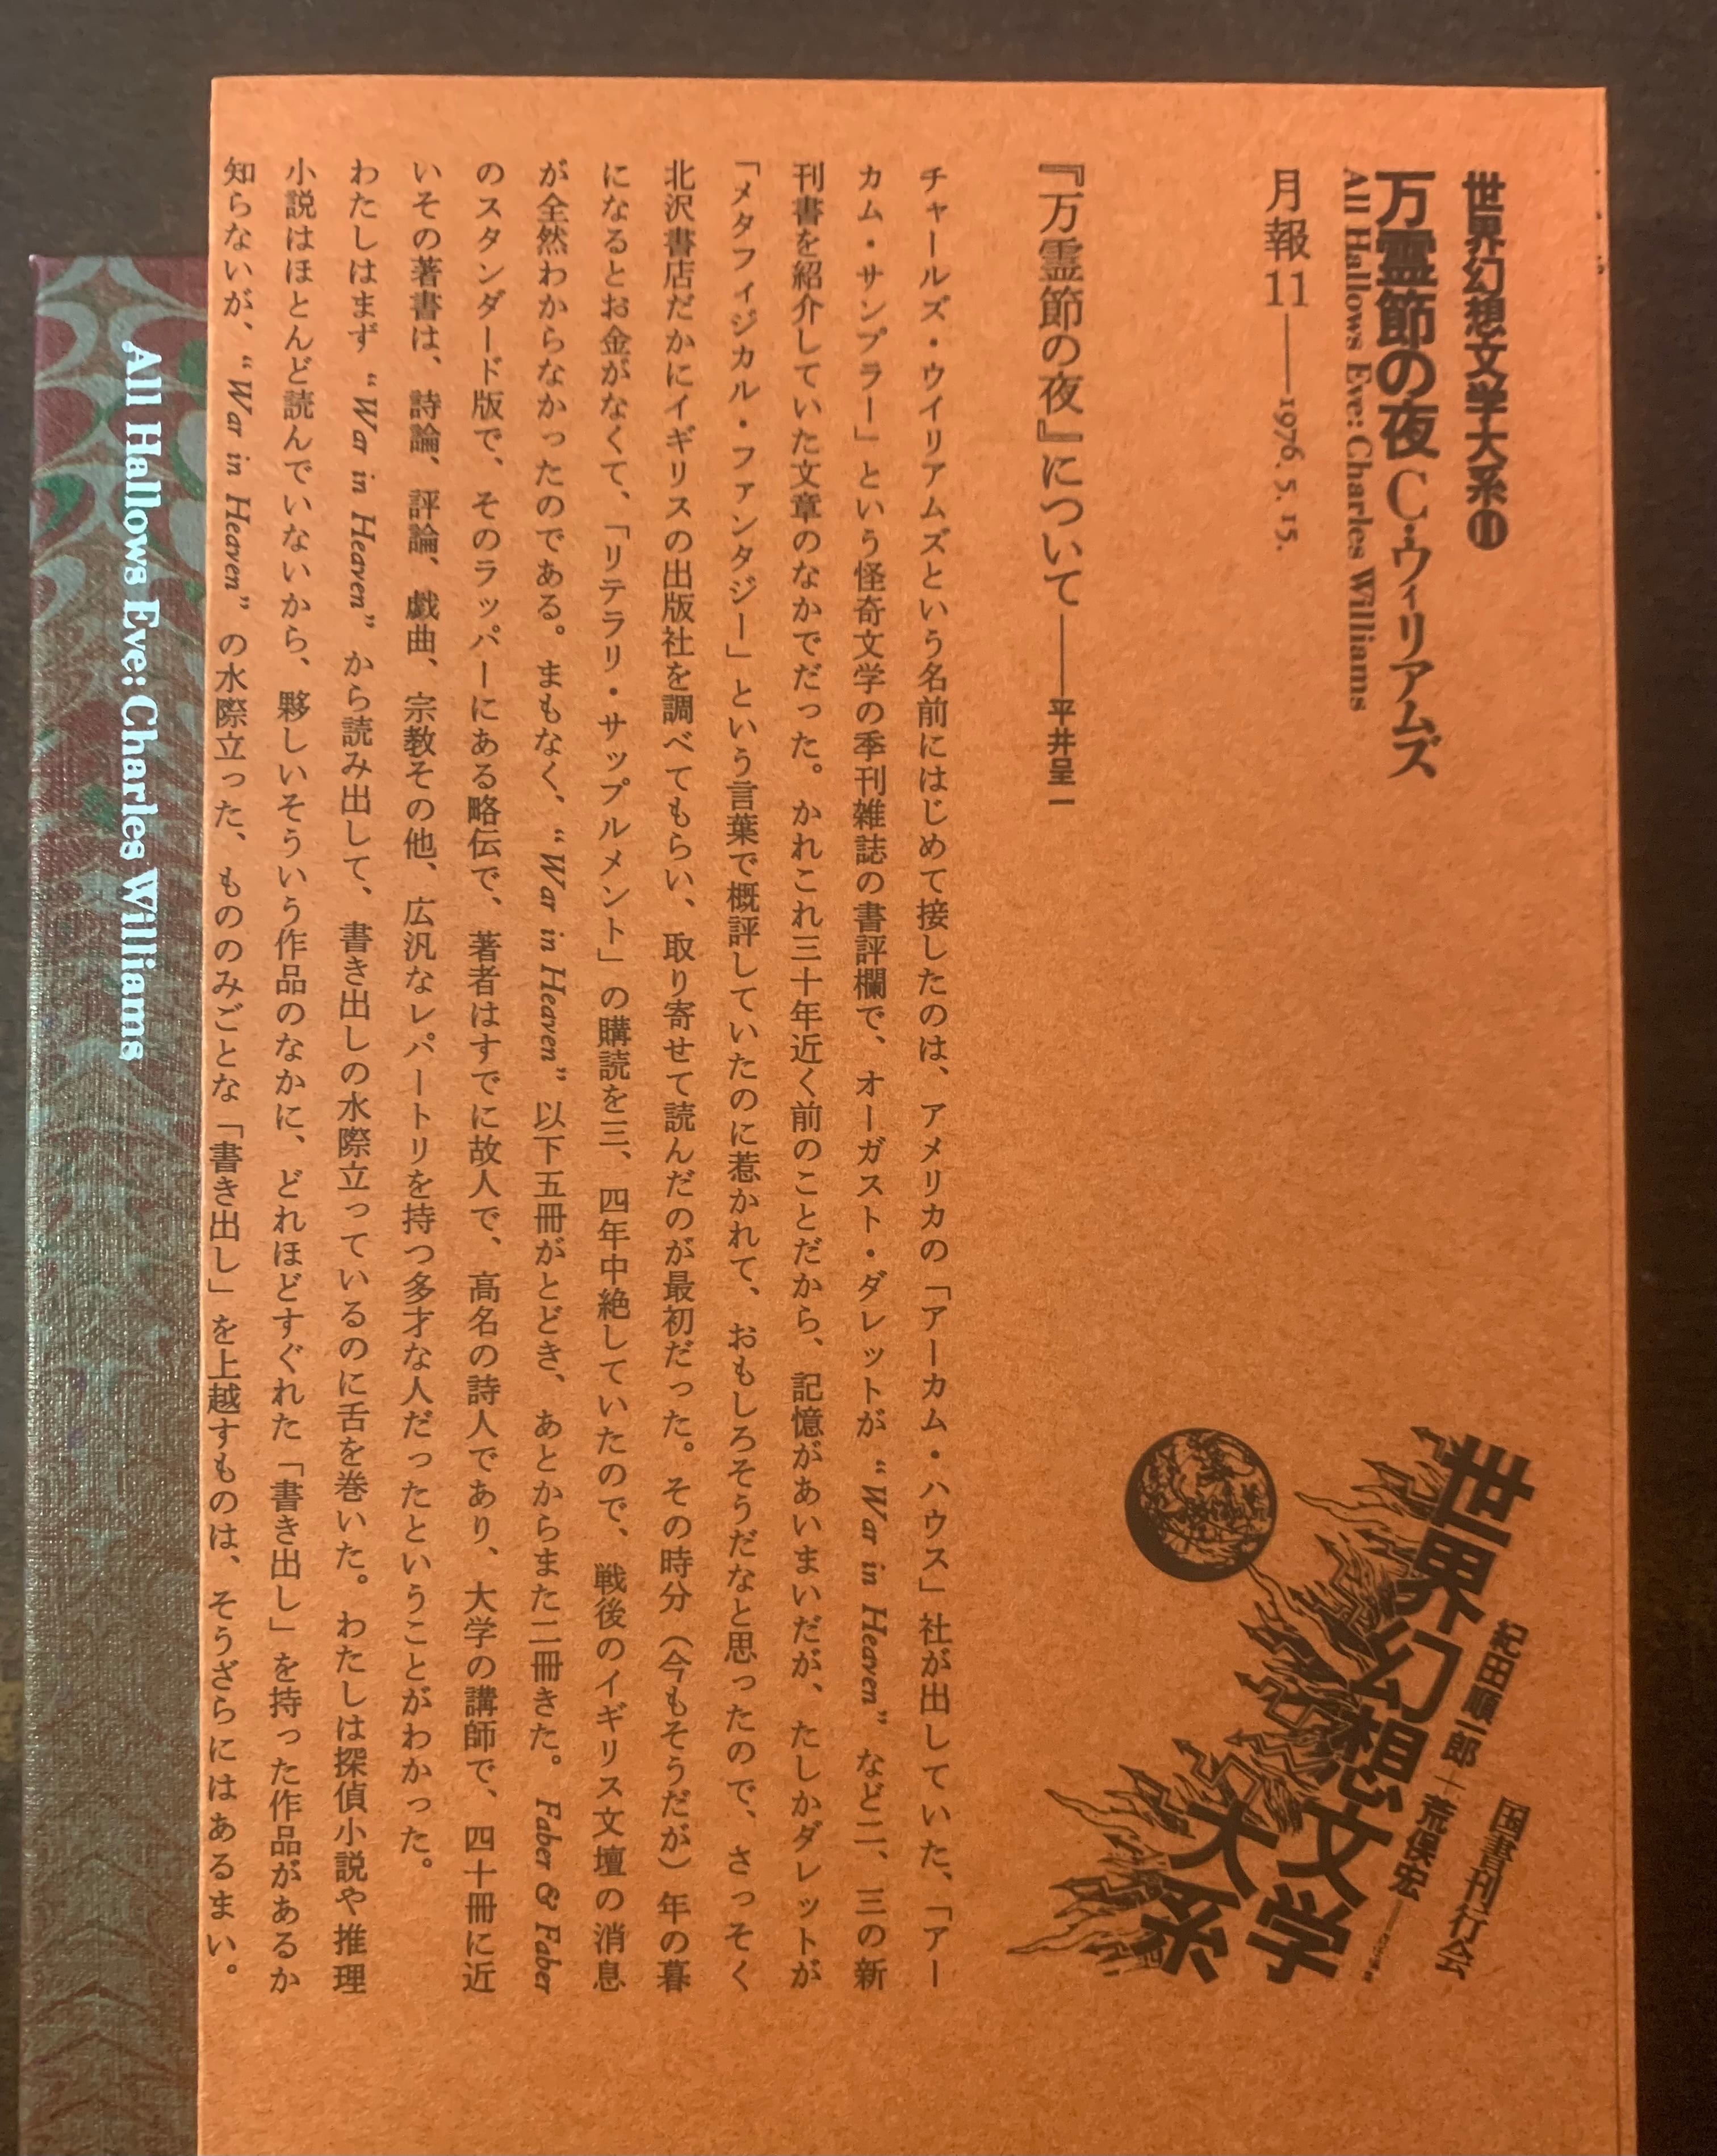 世界幻想文学大系⓫
万霊節の夜 C・ウィリアムズ
All Hallows Eve::Charles Williams
月報11――1976. 5. 15.
世界幻想文学大系
紀田順一郎＋荒俣宏
国書刊行会
『万霊節の夜』について――平井呈一
チャールズ・ウイリアムズという名前にはじめて接したのは、アメリカの「アーカム・ハウス」社が出していた、「アー
カム・サンプラー」という怪奇文学の季刊雑誌の書評欄で、オーガスト・ダレットが “War in Heaven” など二、三の新
刊書を紹介していた文章のなかでだった。かれこれ三十年近く前のことだから、記憶があいまいだが、たしかダレットが
「メタフィジカル・ファンタジー」という言葉で概評していたのに惹かれて、おもしろそうだなと思ったので、さっそく
北沢書店だかにイギリスの出版社を調べてもらい、取り寄せて読んだのが最初だった。その時分（今もそうだが）年の暮
になるとお金がなくて、「リテラリ・サップルメント」の購読を三、四年中絶していたので、戦後のイギリス文壇の消息
が全然わからなかったのである。まもなく、“War in Heaven” 以下五冊がとどき、あとからまた二冊きた。Faber & Faber
のスタンダード版で、そのラッパーにある略伝で、著者はすでに故人で、高名の詩人であり、大学の講師で、四十冊に近
いその著書は、詩論、評論、戯曲、宗教その他、広汎なレパートリを持つ多才な人だったということがわかった。
わたしはまず “War in Heaven” から読み出して、書き出しの水際立っているのに舌を巻いた。わたしは探偵小説や推理
小説はほとんど読んでいないから、夥しいそういう作品のなかに、どれほどすぐれた「書き出し」を持った作品があるか
知らないが、“War in Heaven” の水際立った、もののみごとな「書き出し」を上越すものは、そうざらにはあるまい。
All Hallows Eve::Charles Williams